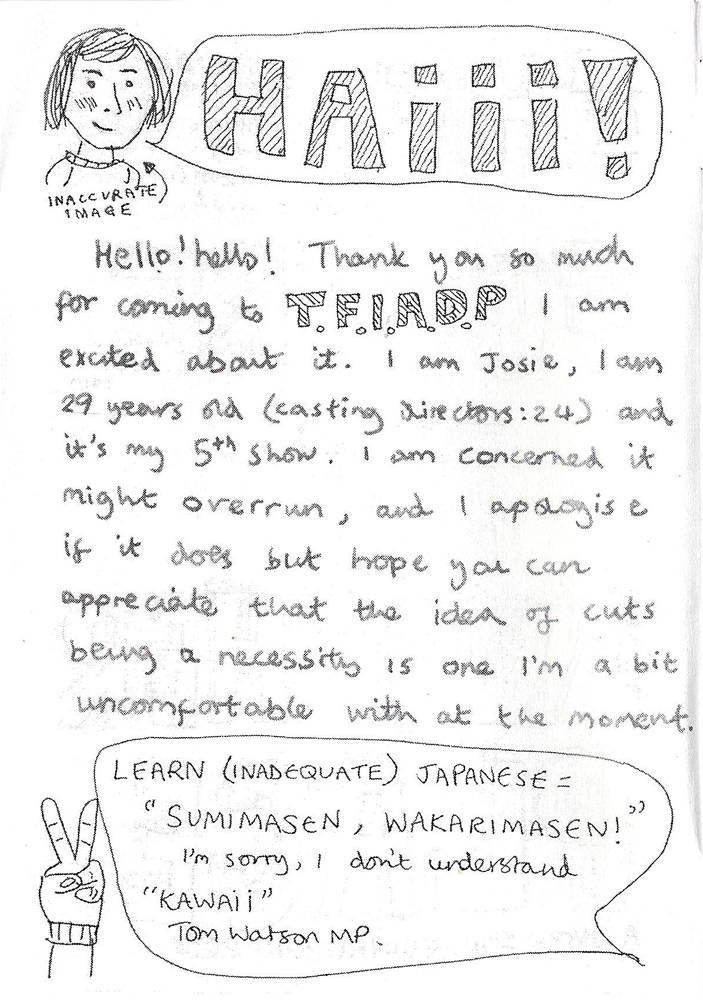 HAiii!
INACCURATE
IMAGE
Hello! hello! Thank you so much
for coming to T.F.I.A.D.P I am
excited about it. I am Josie, I am
29 years old (casting directors: 24) and
it's my 5th show. I am concerned it
might overrun, and I apologise
if it does but hope you can
appreciate that the idea of cuts
being a necessity is one I'm a bit
uncomfortable with at the moment.
LEARN (INADEQUATE) JAPANESE =
"SUMIMASEN, WAKARIMASEN!"
I'm sorry, I don't understand
"KAWAii"
Tom Watson MP.